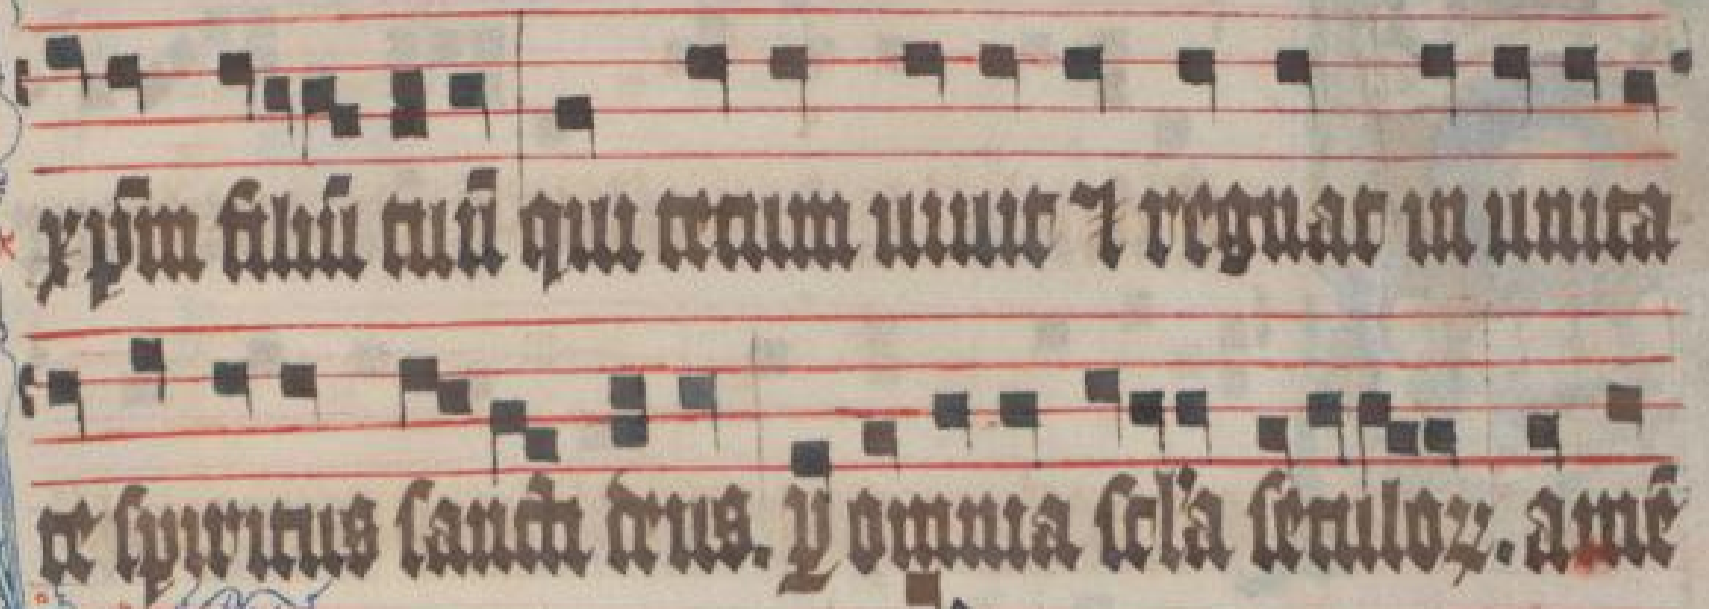 xp̄m filiū tuū qui tecum uiuit ⁊ regnat in unita
te spiritus sancti deus. ꝑ omnia scl'a seculoꝝ. amē